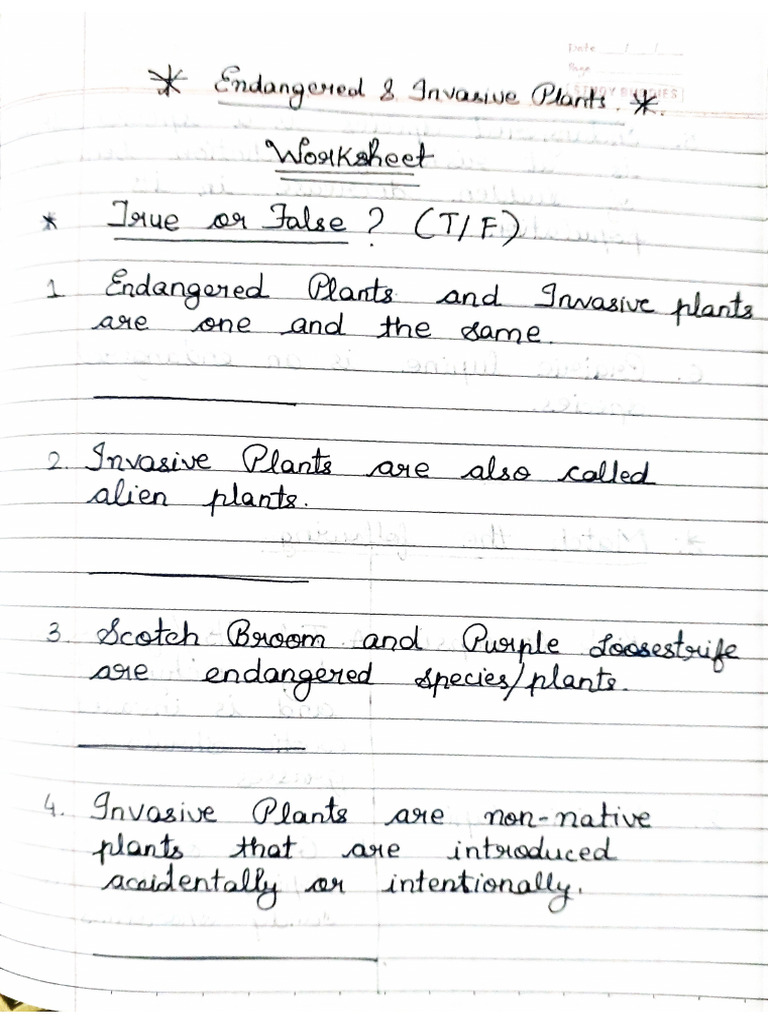 Date / /
Page
* Endangered & Invasive Plants. *.
Worksheet
* True or False ? (T/F)
1 Endangered Plants and Invasive plants
are one and the same.
2. Invasive Plants are also called
alien plants.
3 Scotch Broom and Purple Loosestrife
are endangered species/plants.
4. Invasive Plants are non-native
plants that are introduced
accidentally or intentionally.